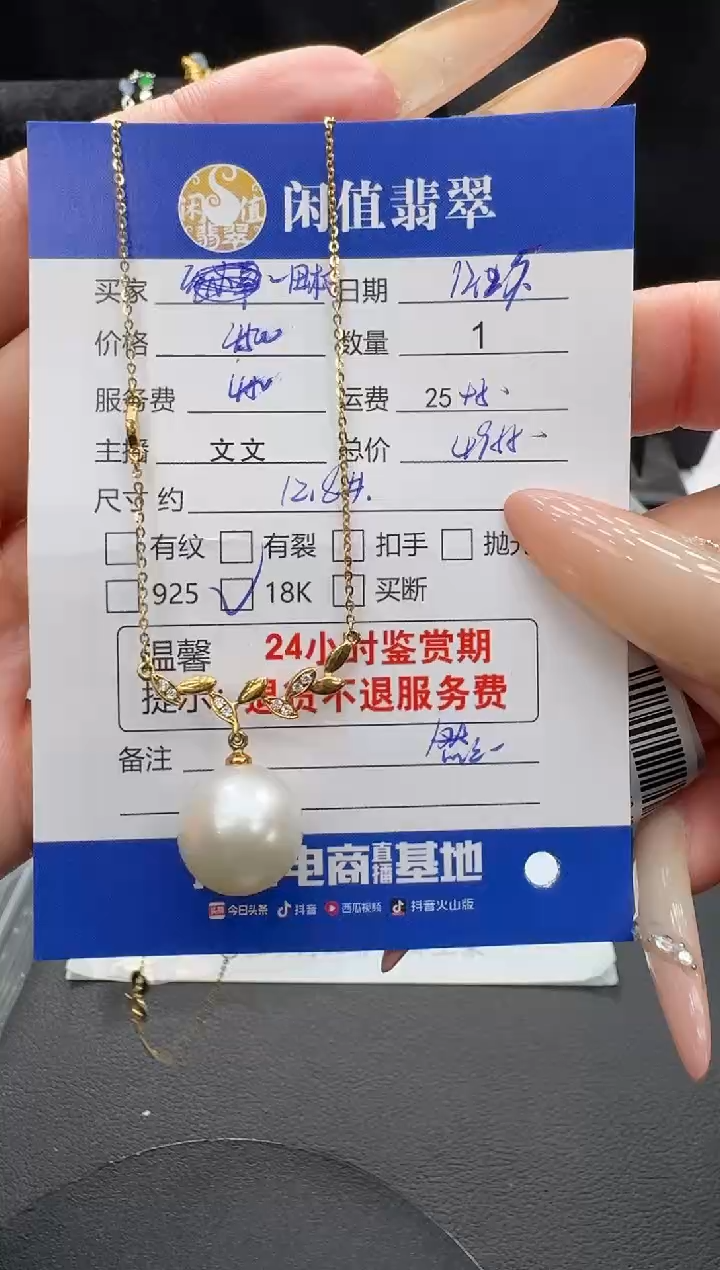 闲值翡翠
闲值
翡翠
买家 日期
价格 4500 数量 1
服务费 450 运费 25
主播 文文 总价
尺寸 约 12.8
有纹 有裂 扣手
925 18K 买断
温馨 24小时鉴赏期
提示: 退货不退服务费
备注
电商直播基地
今日头条 抖音 西瓜视频 抖音火山版